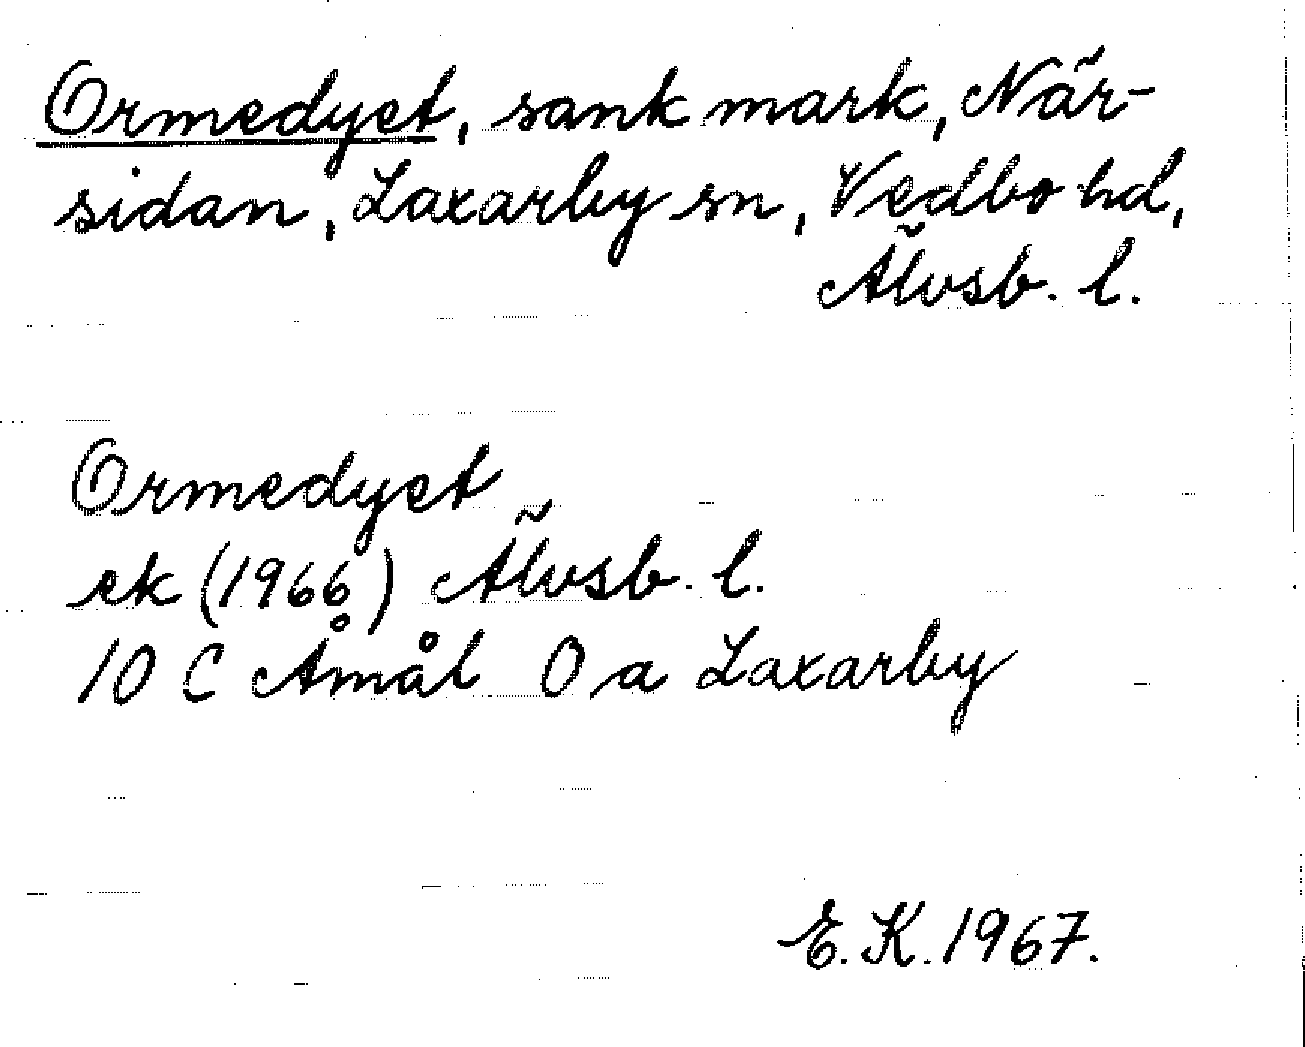 Ormedyet, sank mark, När-
sidan, Laxarby sn, Vedbo hd,
Älvsb. l.
Ormedyet
ek (1966) Älvsb. l.
10 C Åmål 0 a Laxarby
E. K. 1967.